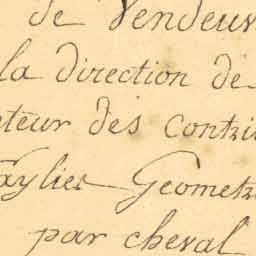 de Vendeuv
la direction de
teur des contri
aylier Geometr
par cheval